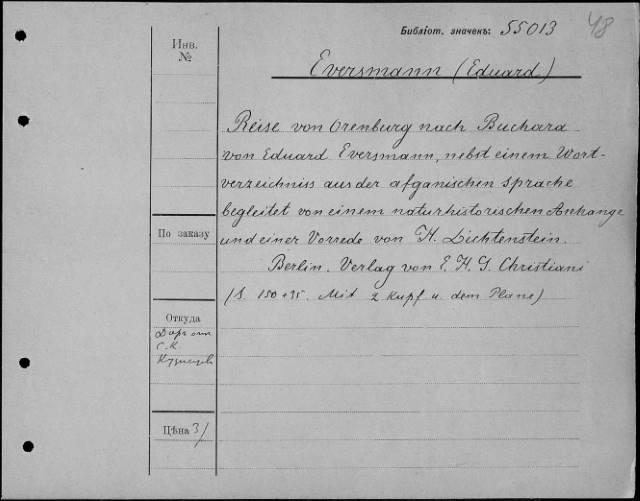 Библіот. значекъ: 55013
48
Инв.
№
Eversmann (Eduard)
Reise von Orenburg nach Buchara
von Eduard Eversmann, nebst einem Wort-
verzeichniss aus der afganischen Sprache
begleitet von einem naturhistorischen Anhange
und einer Vorrede von H. Lichtenstein.
Berlin. Verlag von E. H. G. Christiani
(S. 150 + 35. Mit 2 Kupf u. dem Plane)
По заказу
Откуда
Даръ отъ
С. К.
Кузнецова
Цѣна 3/